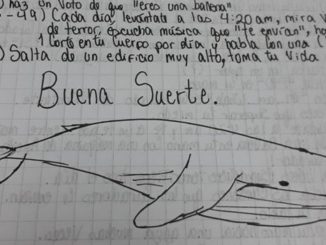 haz un voto de que "eres una ballena"
-49) Cada día levántate a las 4:20 am, mira v
de terror, escucha música que "te envían", ha
1 corte en tu cuerpo por día y habla con una (
) Salta de un edificio muy alto, toma tu vida
Buena Suerte.